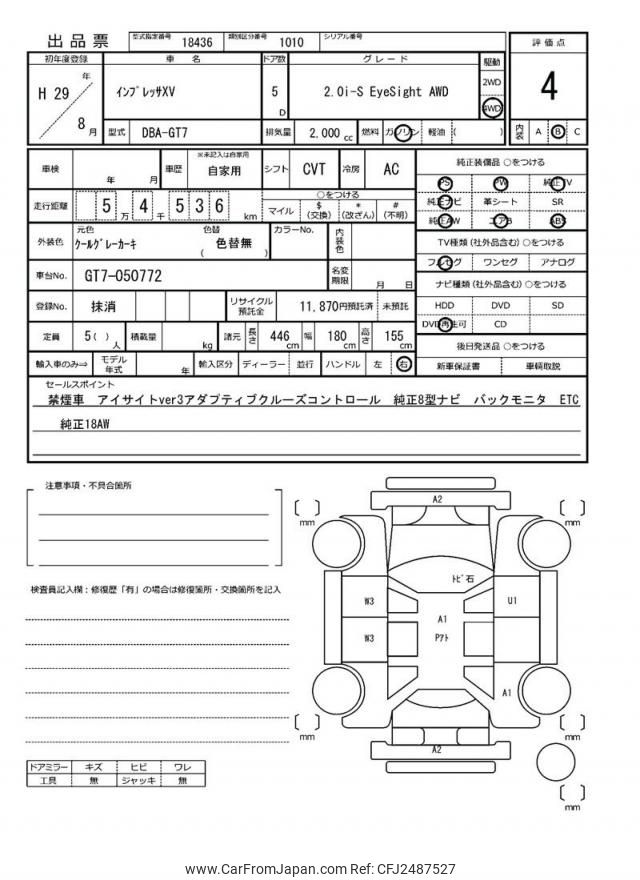 出品票 型式指定番号 18436 類別区分番号 1010 シリアル番号
初年度登録 車 名 ドア数 グレード 駆動 評価点
H 29 年 8 月 ｲﾝﾌﾟﾚｯｻXV 5 D 2.0i-S EyeSight AWD 2WD 4WD 4
型式 DBA-GT7 排気量 2,000 cc 燃料 ガソリン 軽油 ( ) 内装 A B C
車検 年 月 車歴 ※未記入は自家用 自家用 シフト CVT 冷房 AC
走行距離 5 万 4 千 5 3 6 km ○をつける
マイル $(交換) *(改ざん) #(不明)
外装色 元色 ｸｰﾙｸﾞﾚｰｶｰｷ 色替 色替無 ( ) カラーNo. 内装色
車台No. GT7-050772 名変期限 月 日
登録No. 抹消 リサイクル預託金 11,870円預託済 未預託
定員 5( ) 人 積載量 kg 諸元 長さ 446 cm 幅 180 cm 高さ 155 cm
輸入車のみ⇒ モデル年式 年 輸入区分 ディーラー 並行 ハンドル 左 右
純正装備品 ○をつける
PS PW 純正TV
純正ナビ 革シート SR
純正AW エアB ABS
TV種類 (社外品含む) ○をつける
フルセグ ワンセグ アナログ
ナビ種類 (社外品含む) ○をつける
HDD DVD SD
DVD再生可 CD
後日発送品 ○をつける
新車保証書 車輌取説
セールスポイント
禁煙車 アイサイトver3アダプティブクルーズコントロール 純正8型ナビ バックモニタ ETC
純正18AW
注意事項・不具合箇所
検査員記入欄：修復歴「有」の場合は修復箇所・交換箇所を記入
ドアミラー キズ ヒビ ワレ
工具 無 ジャッキ 無
A2
mm
mm
ﾄﾋﾞ石
W3
U1
A1
W3
Pｱﾄ
A1
mm
mm
A2
mm
www.CarFromJapan.com Ref: CFJ2487527